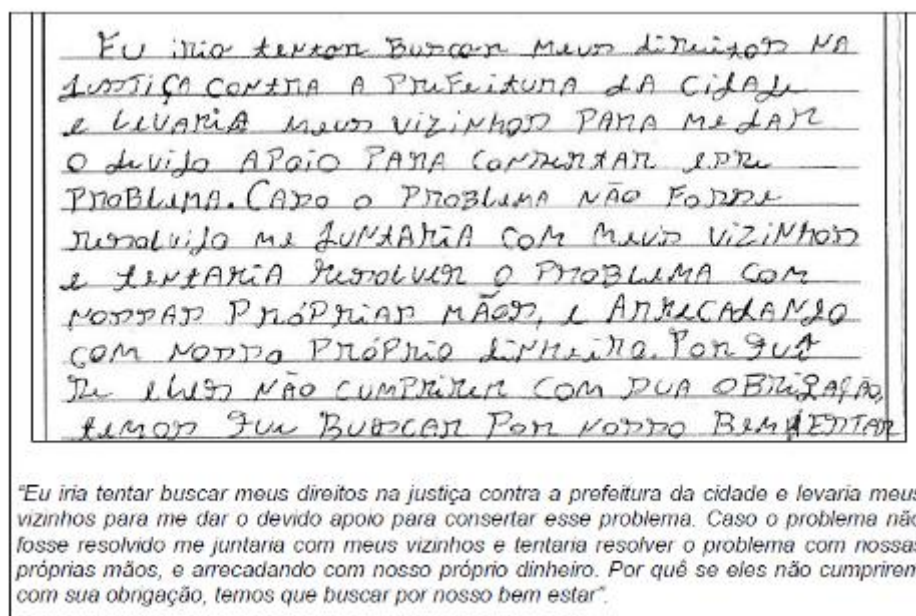 Eu irio tentan Buscan meus dineitos NA
Justiça contra A Prefeitura dA Cidade
e LEVARIA meus vizinhos PARA me dAR
o devido APoio PARA consertar esse
PROBLEMA. CASO o PROBLEMA NÃO Fosse
resolvido me JUNTARIA COM meus vizinhos
e tentARIA resolver o PROBLEMA com
nossas PRóPRIAS MÃOS, e ARRECADANDO
COM NOSSO PRóPRIO dinheiro. Por quê
se eles NÃO CUMPRIREM COM SUA OBRIGAÇÃO,
temos que BUSCAR POR NOSSO BEM ESTAR
"Eu iria tentar buscar meus direitos na justiça contra a prefeitura da cidade e levaria meus
vizinhos para me dar o devido apoio para consertar esse problema. Caso o problema não
fosse resolvido me juntaria com meus vizinhos e tentaria resolver o problema com nossas
próprias mãos, e arrecadando com nosso próprio dinheiro. Por quê se eles não cumprirem
com sua obrigação, temos que buscar por nosso bem estar".